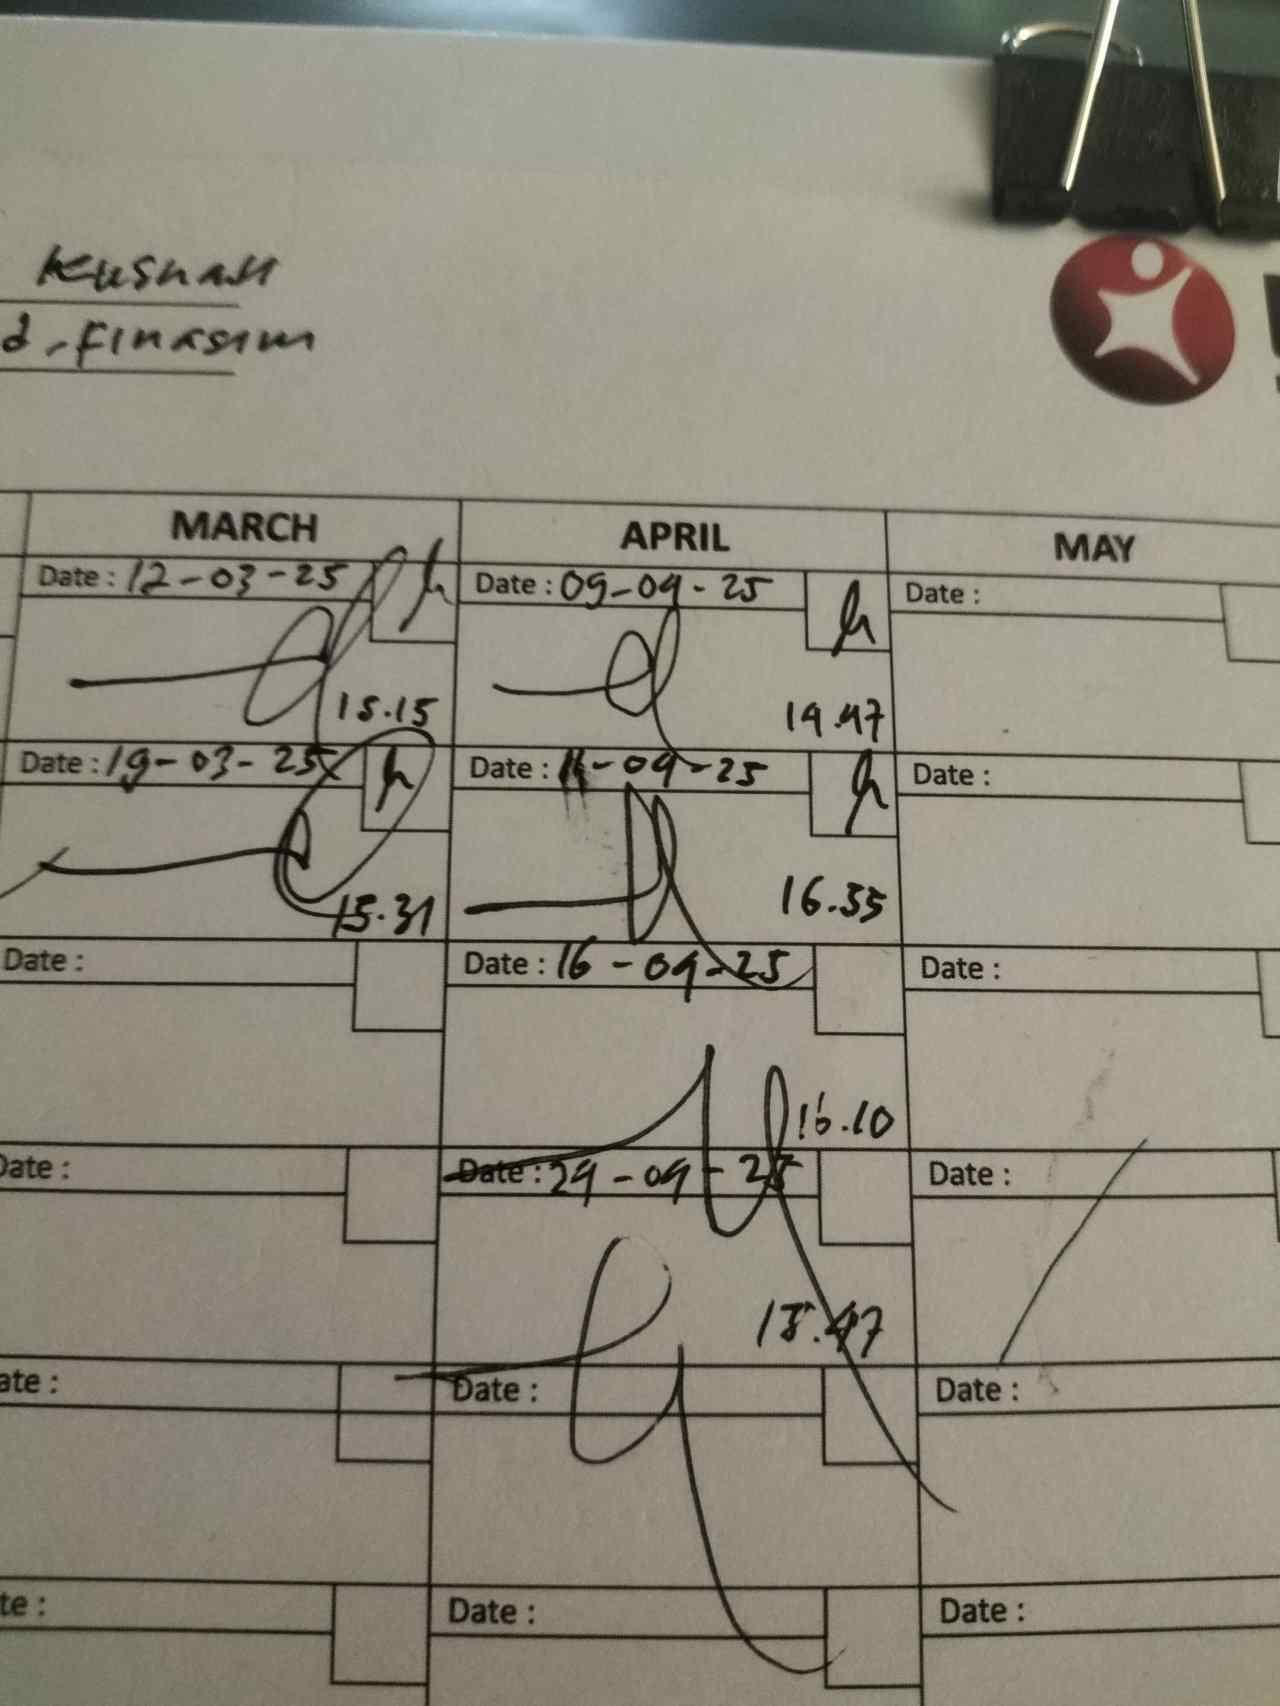 Kusnadi
MARCH APRIL MAY
Date : 12-03-25 Date : 09-04-25 Date :
15.15 14.47
Date : 19-03-25 Date : -04-25 Date :
15.31 16.35
Date : Date : 16-04-25 Date :
16.10
Date : Date : 24-04-25 Date :
15.47
ate : Date : Date :
te : Date : Date :